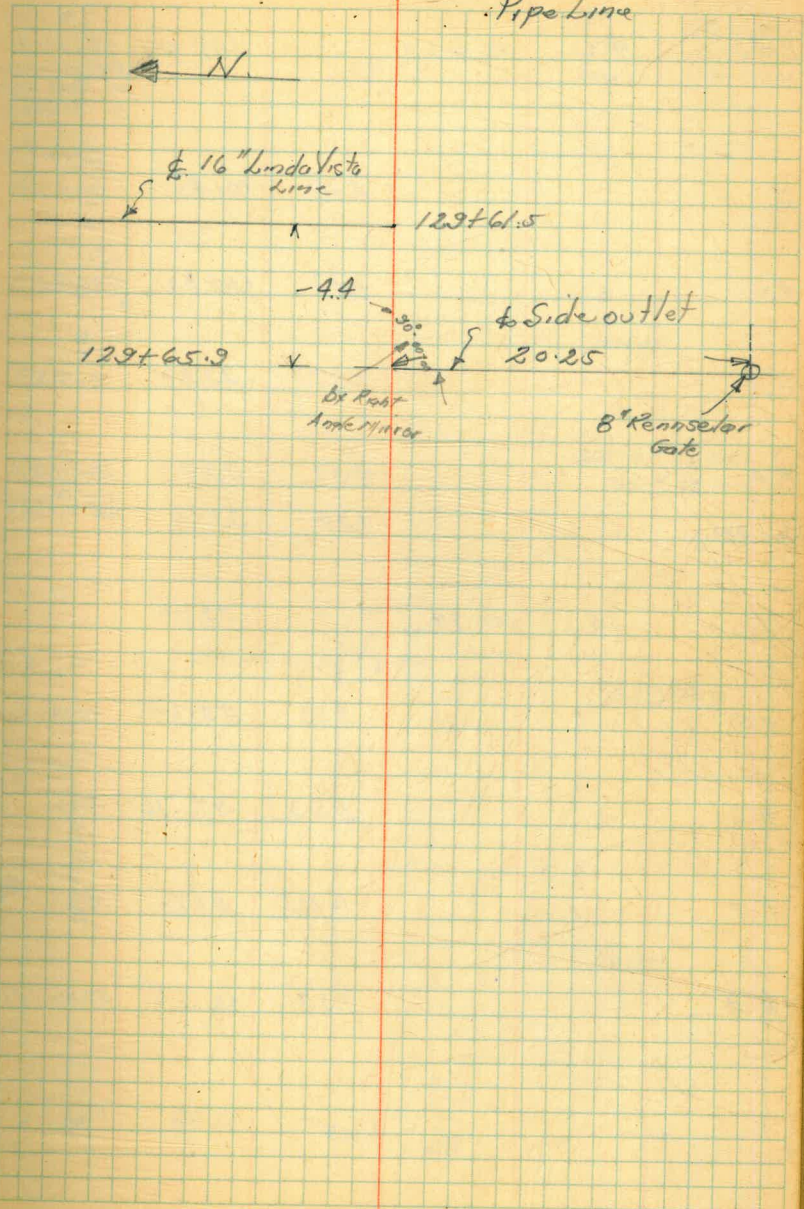 Pipe Line
N.
℄ 16" Linda Vista
Line
129+61.5
-4.4
90°-00'
℄ Side outlet
129+65.9
20.25
By Right
Angle Mirror
8" Rennselar
Gate